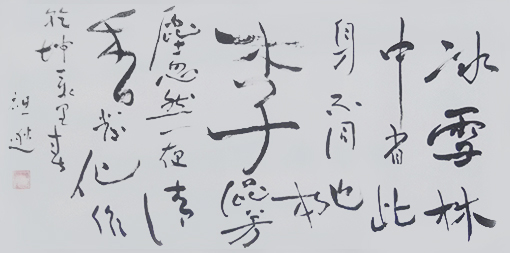 冰雪林
中著此
身不同桃
李混芳
塵忽然一夜清
香發散作
乾坤万里春